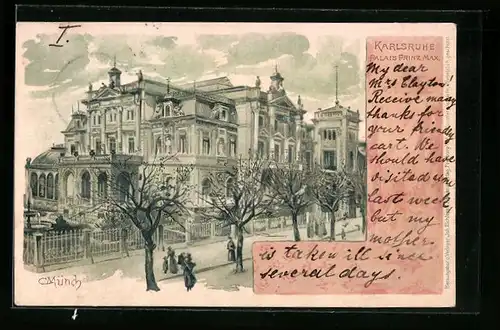 I.
KARLSRUHE
PALAIS PRINZ MAX.
My dear
Mrs Clayton!
Receive many
thanks for
your friendy
cart. We
should have
visited
last week
but my
mother
is taken ill since
several days.
C Münch